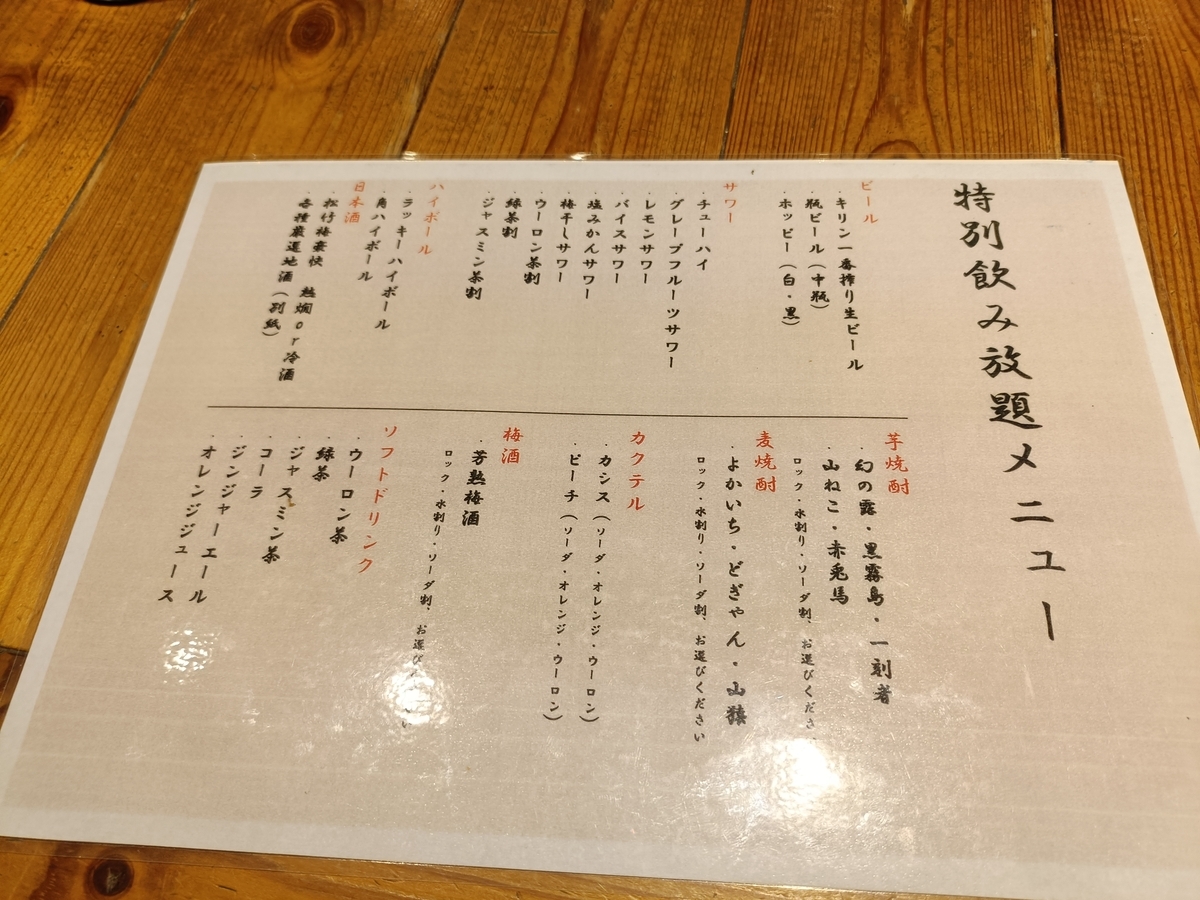 特別飲み放題メニュー
ビール
・キリン一番搾り生ビール
・瓶ビール（中瓶）
・ホッピー（白・黒）
サワー
・チューハイ
・グレープフルーツサワー
・レモンサワー
・バイスサワー
・塩みかんサワー
・梅干しサワー
・ウーロン茶割
・緑茶割
・ジャスミン茶割
ハイボール
・ラッキーハイボール
・角ハイボール
日本酒
・松竹梅豪快　熱燗or冷酒
・各種厳選地酒（別紙）
芋焼酎
・幻の露・黒霧島・一刻者
・山ねこ・赤兎馬
ロック・水割り・ソーダ割、お選びくださ
麦焼酎
・よかいち・どぎゃん・山猿
ロック・水割り・ソーダ割、お選びください
カクテル
・カシス（ソーダ・オレンジ・ウーロン）
・ピーチ（ソーダ・オレンジ・ウーロン）
梅酒
・芳熟梅酒
ロック・水割り・ソーダ割、お選びください
ソフトドリンク
・ウーロン茶
・緑茶
・ジャスミン茶
・コーラ
・ジンジャーエール
・オレンジジュース